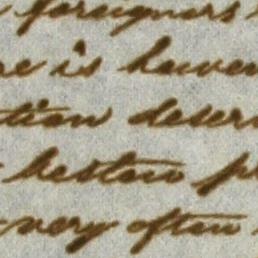 foreigners
re is however
tion deser
bestow p
very often